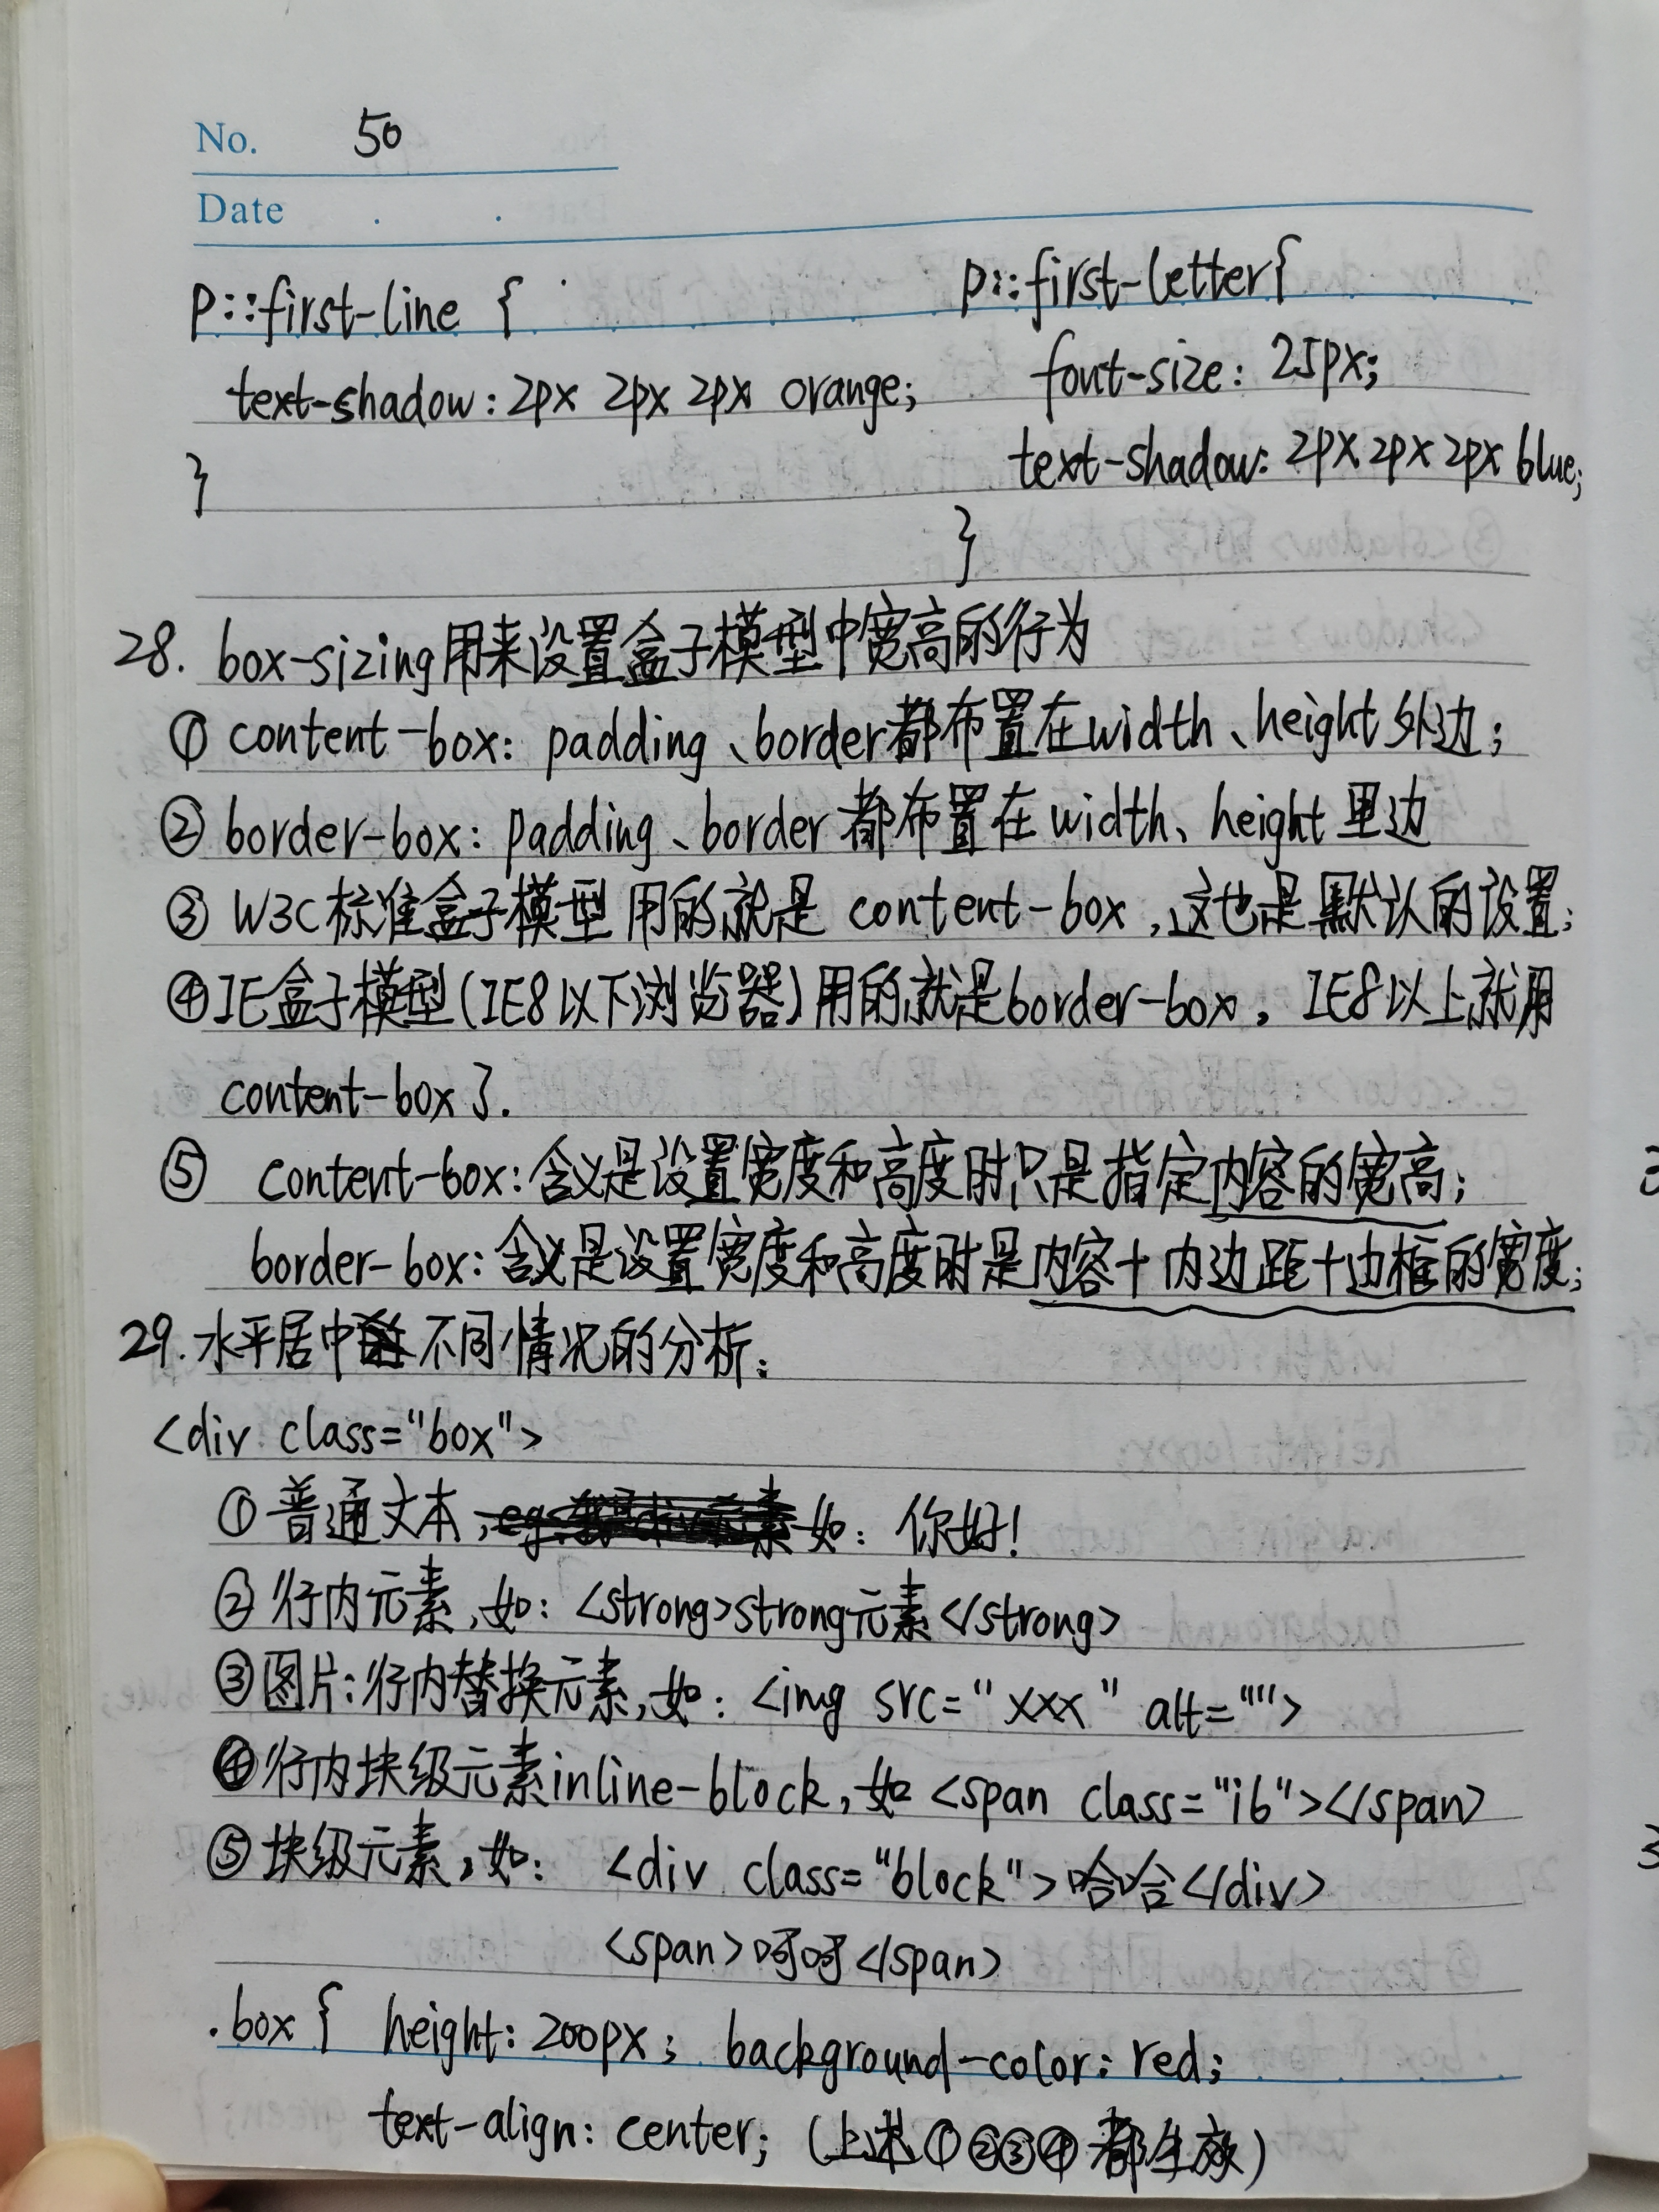 No. 50
Date . .
p::first-line {
text-shadow: 2px 2px 2px orange;
}
p::first-letter{
font-size: 25px;
text-shadow: 2px 2px 2px blue;
}
28. box-sizing用来设置盒子模型中宽高的行为
① content-box: padding、border都布置在width、height外边;
② border-box: padding、border都布置在width、height里边
③ W3C标准盒子模型用的就是 content-box,这也是默认的设置;
④IE盒子模型(IE8以下浏览器)用的就是border-box, IE8以上就用
content-box了.
⑤ content-box:含义是设置宽度和高度时只是指定内容的宽高;
border-box:含义是设置宽度和高度时是内容+内边距+边框的宽度;
29.水平居中不同情况的分析:
<div class="box">
①普通文本,如: 你好!
②行内元素,如: <strong>strong元素</strong>
③图片:行内替换元素,如: <img src="xxx" alt="">
④行内块级元素inline-block,如 <span class="ib"></span>
⑤块级元素,如: <div class="block">哈哈</div>
<span>呵呵</span>
.box { height: 200px; background-color: red;
text-align: center; (上述①②③④都生效)